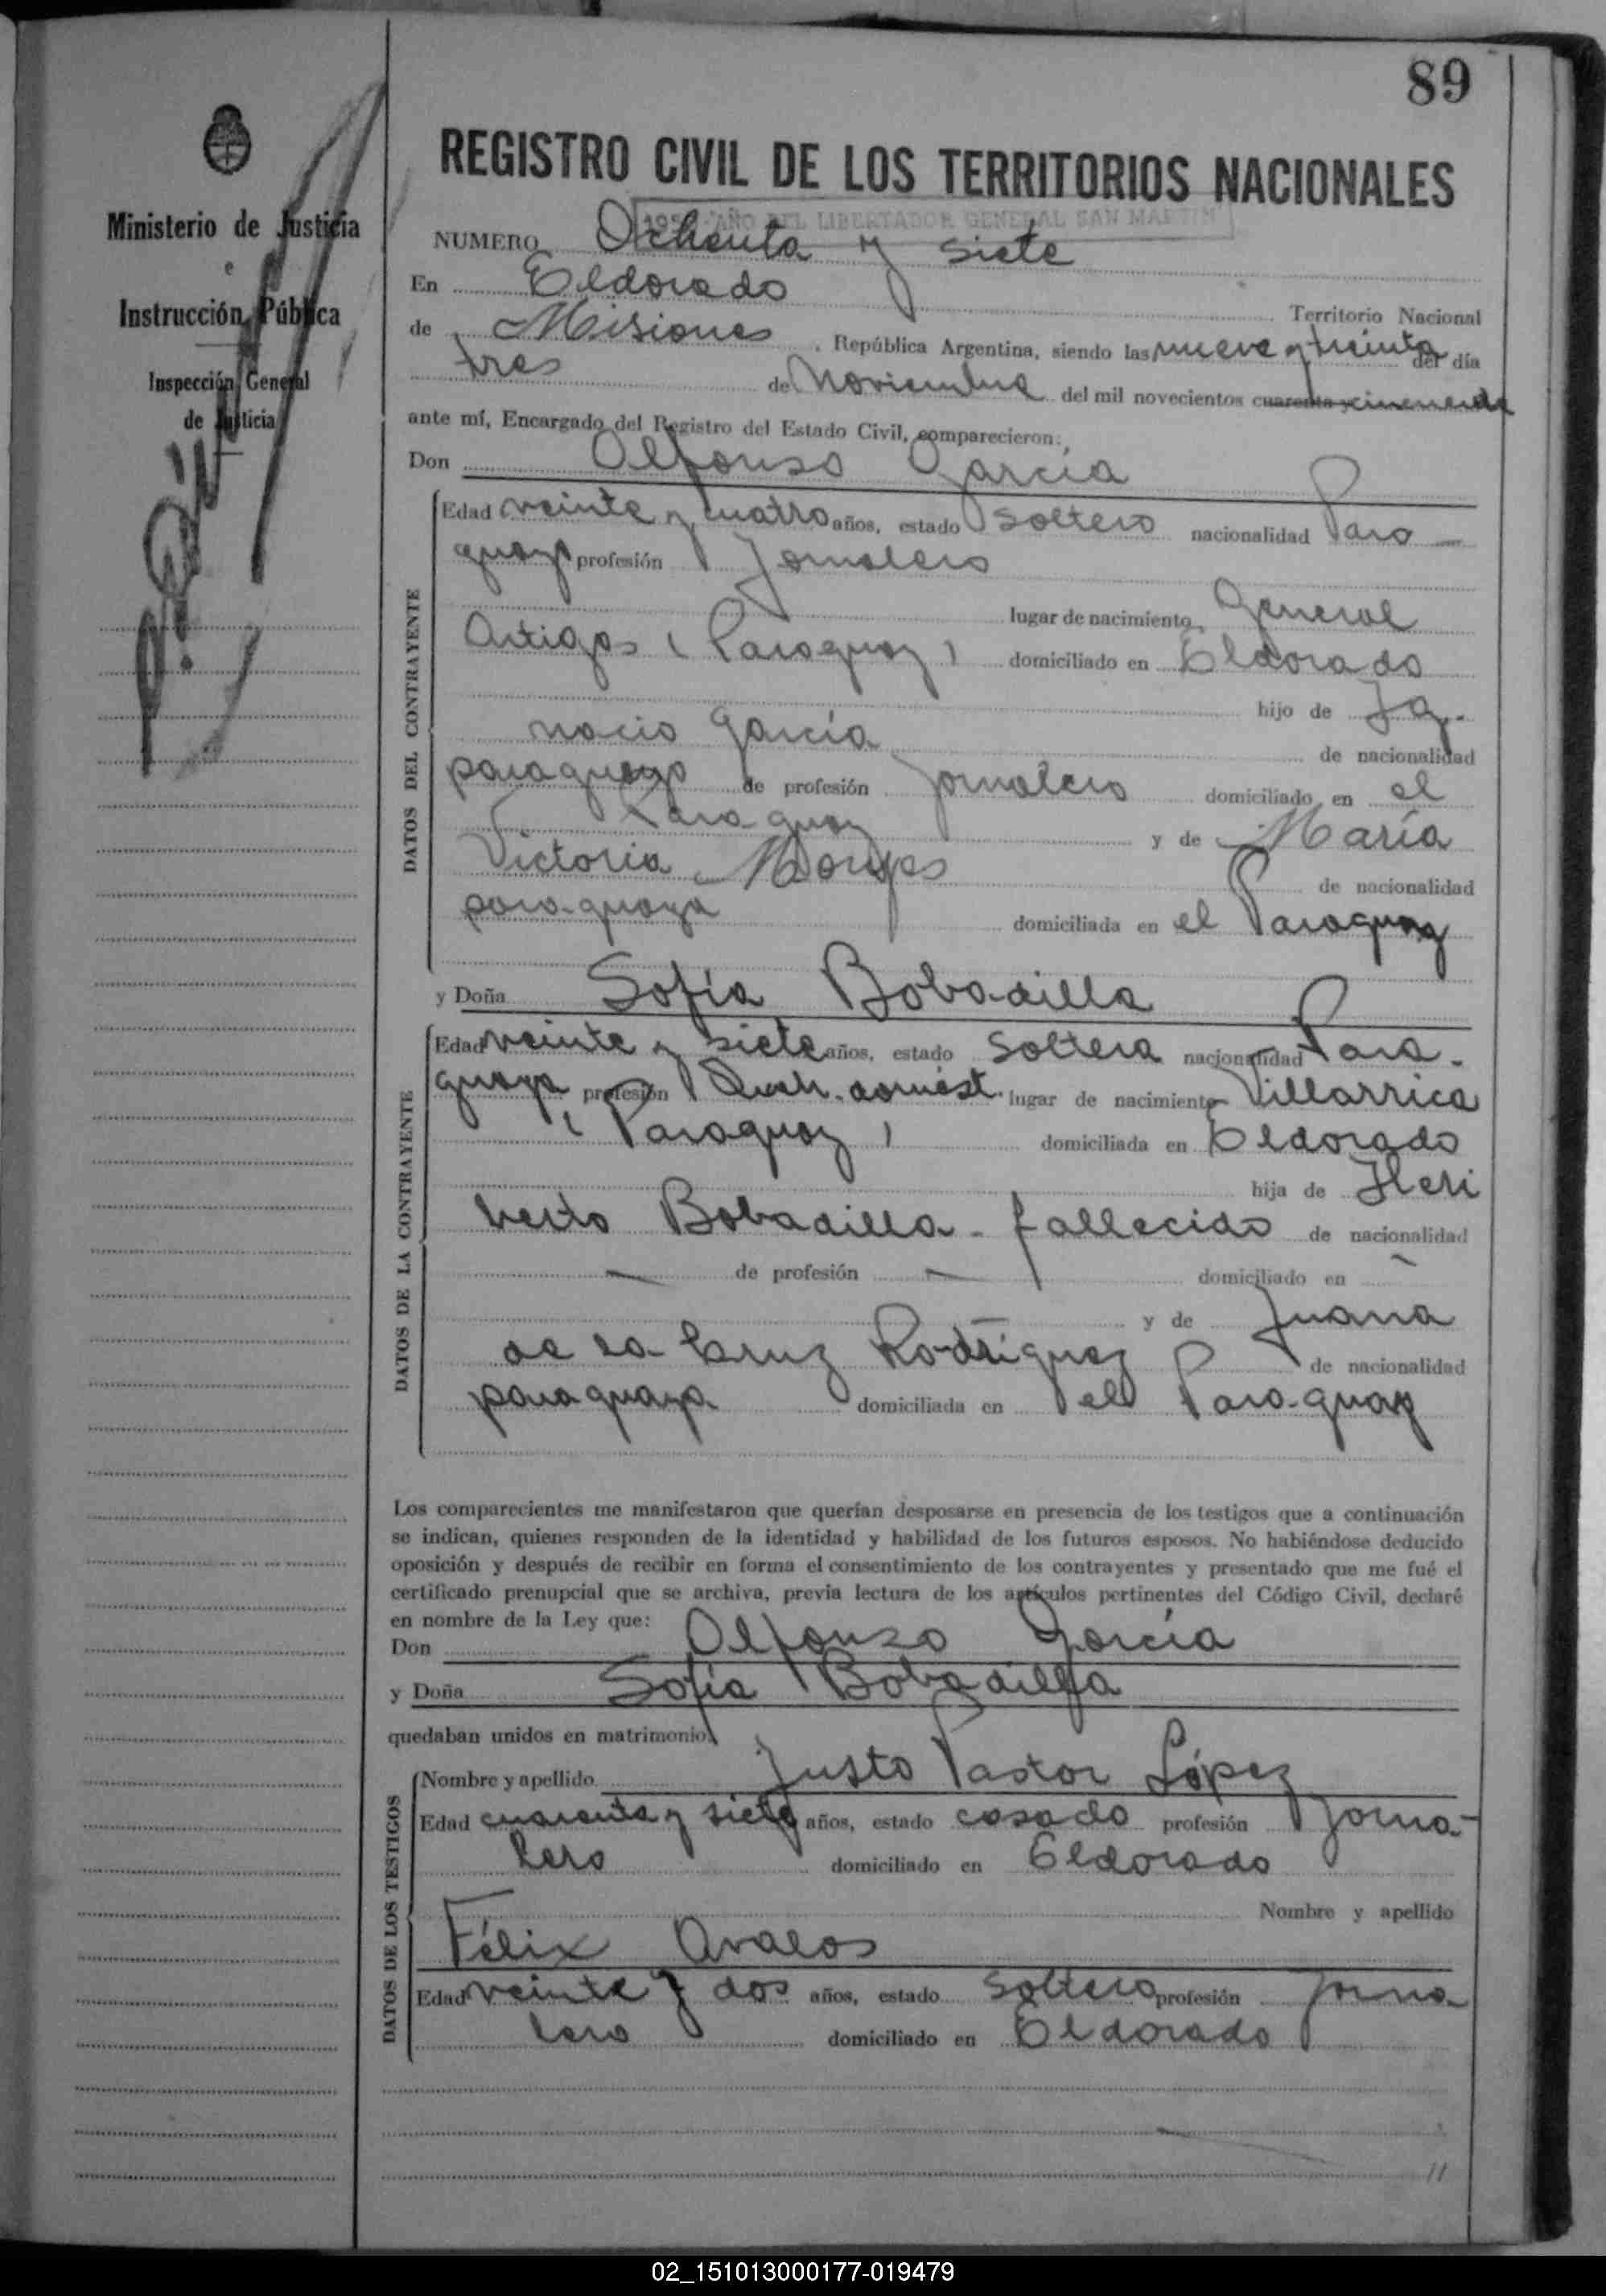 89
REGISTRO CIVIL DE LOS TERRITORIOS NACIONALES
AÑO DEL LIBERTADOR GENERAL SAN MARTIN
Ministerio de Justicia
e
Instrucción Pública
Inspección General
de Justicia
NUMERO Ochenta y siete
En Eldorado
Territorio Nacional
de Misiones, República Argentina, siendo las nueve y treinta del día
tres de Noviembre del mil novecientos cuarenta y cincuenta
ante mí, Encargado del Registro del Estado Civil, comparecieron:
Don Alfonso García
DATOS DEL CONTRAYENTE
Edad veinte y cuatro años, estado soltero nacionalidad Para-
guayo profesión Jornalero
lugar de nacimiento General
Artigas (Paraguay) domiciliado en Eldorado
hijo de Ig-
nacio García
de nacionalidad
paraguayo de profesión Jornalero domiciliado en el
Paraguay y de María
Victoria
de nacionalidad
paraguaya domiciliada en el Paraguay
y Doña Sofía Bobadilla
DATOS DE LA CONTRAYENTE
Edad veinte y siete años, estado soltera nacionalidad Para-
guaya profesión Queh. domést. lugar de nacimiento Villarrica
(Paraguay) domiciliada en Eldorado
hija de Heri
berto Bobadilla - fallecido de nacionalidad
— de profesión — domiciliado en —
y de Juana
de la Cruz Rodríguez
de nacionalidad
paraguaya domiciliada en el Paraguay
Los comparecientes me manifestaron que querían desposarse en presencia de los testigos que a continuación
se indican, quienes responden de la identidad y habilidad de los futuros esposos. No habiéndose deducido
oposición y después de recibir en forma el consentimiento de los contrayentes y presentado que me fué el
certificado prenupcial que se archiva, previa lectura de los artículos pertinentes del Código Civil, declaré
en nombre de la Ley que:
Don Alfonzo García
y Doña Sofía Bobadilla
quedaban unidos en matrimonio.
DATOS DE LOS TESTIGOS
Nombre y apellido Justo Pastor López
Edad cuarenta y siete años, estado casado profesión Jorna-
lero domiciliado en Eldorado
Nombre y apellido
Félix Avalos
Edad veinte y dos años, estado soltero profesión Jorna
lero domiciliado en Eldorado
02_151013000177-019479